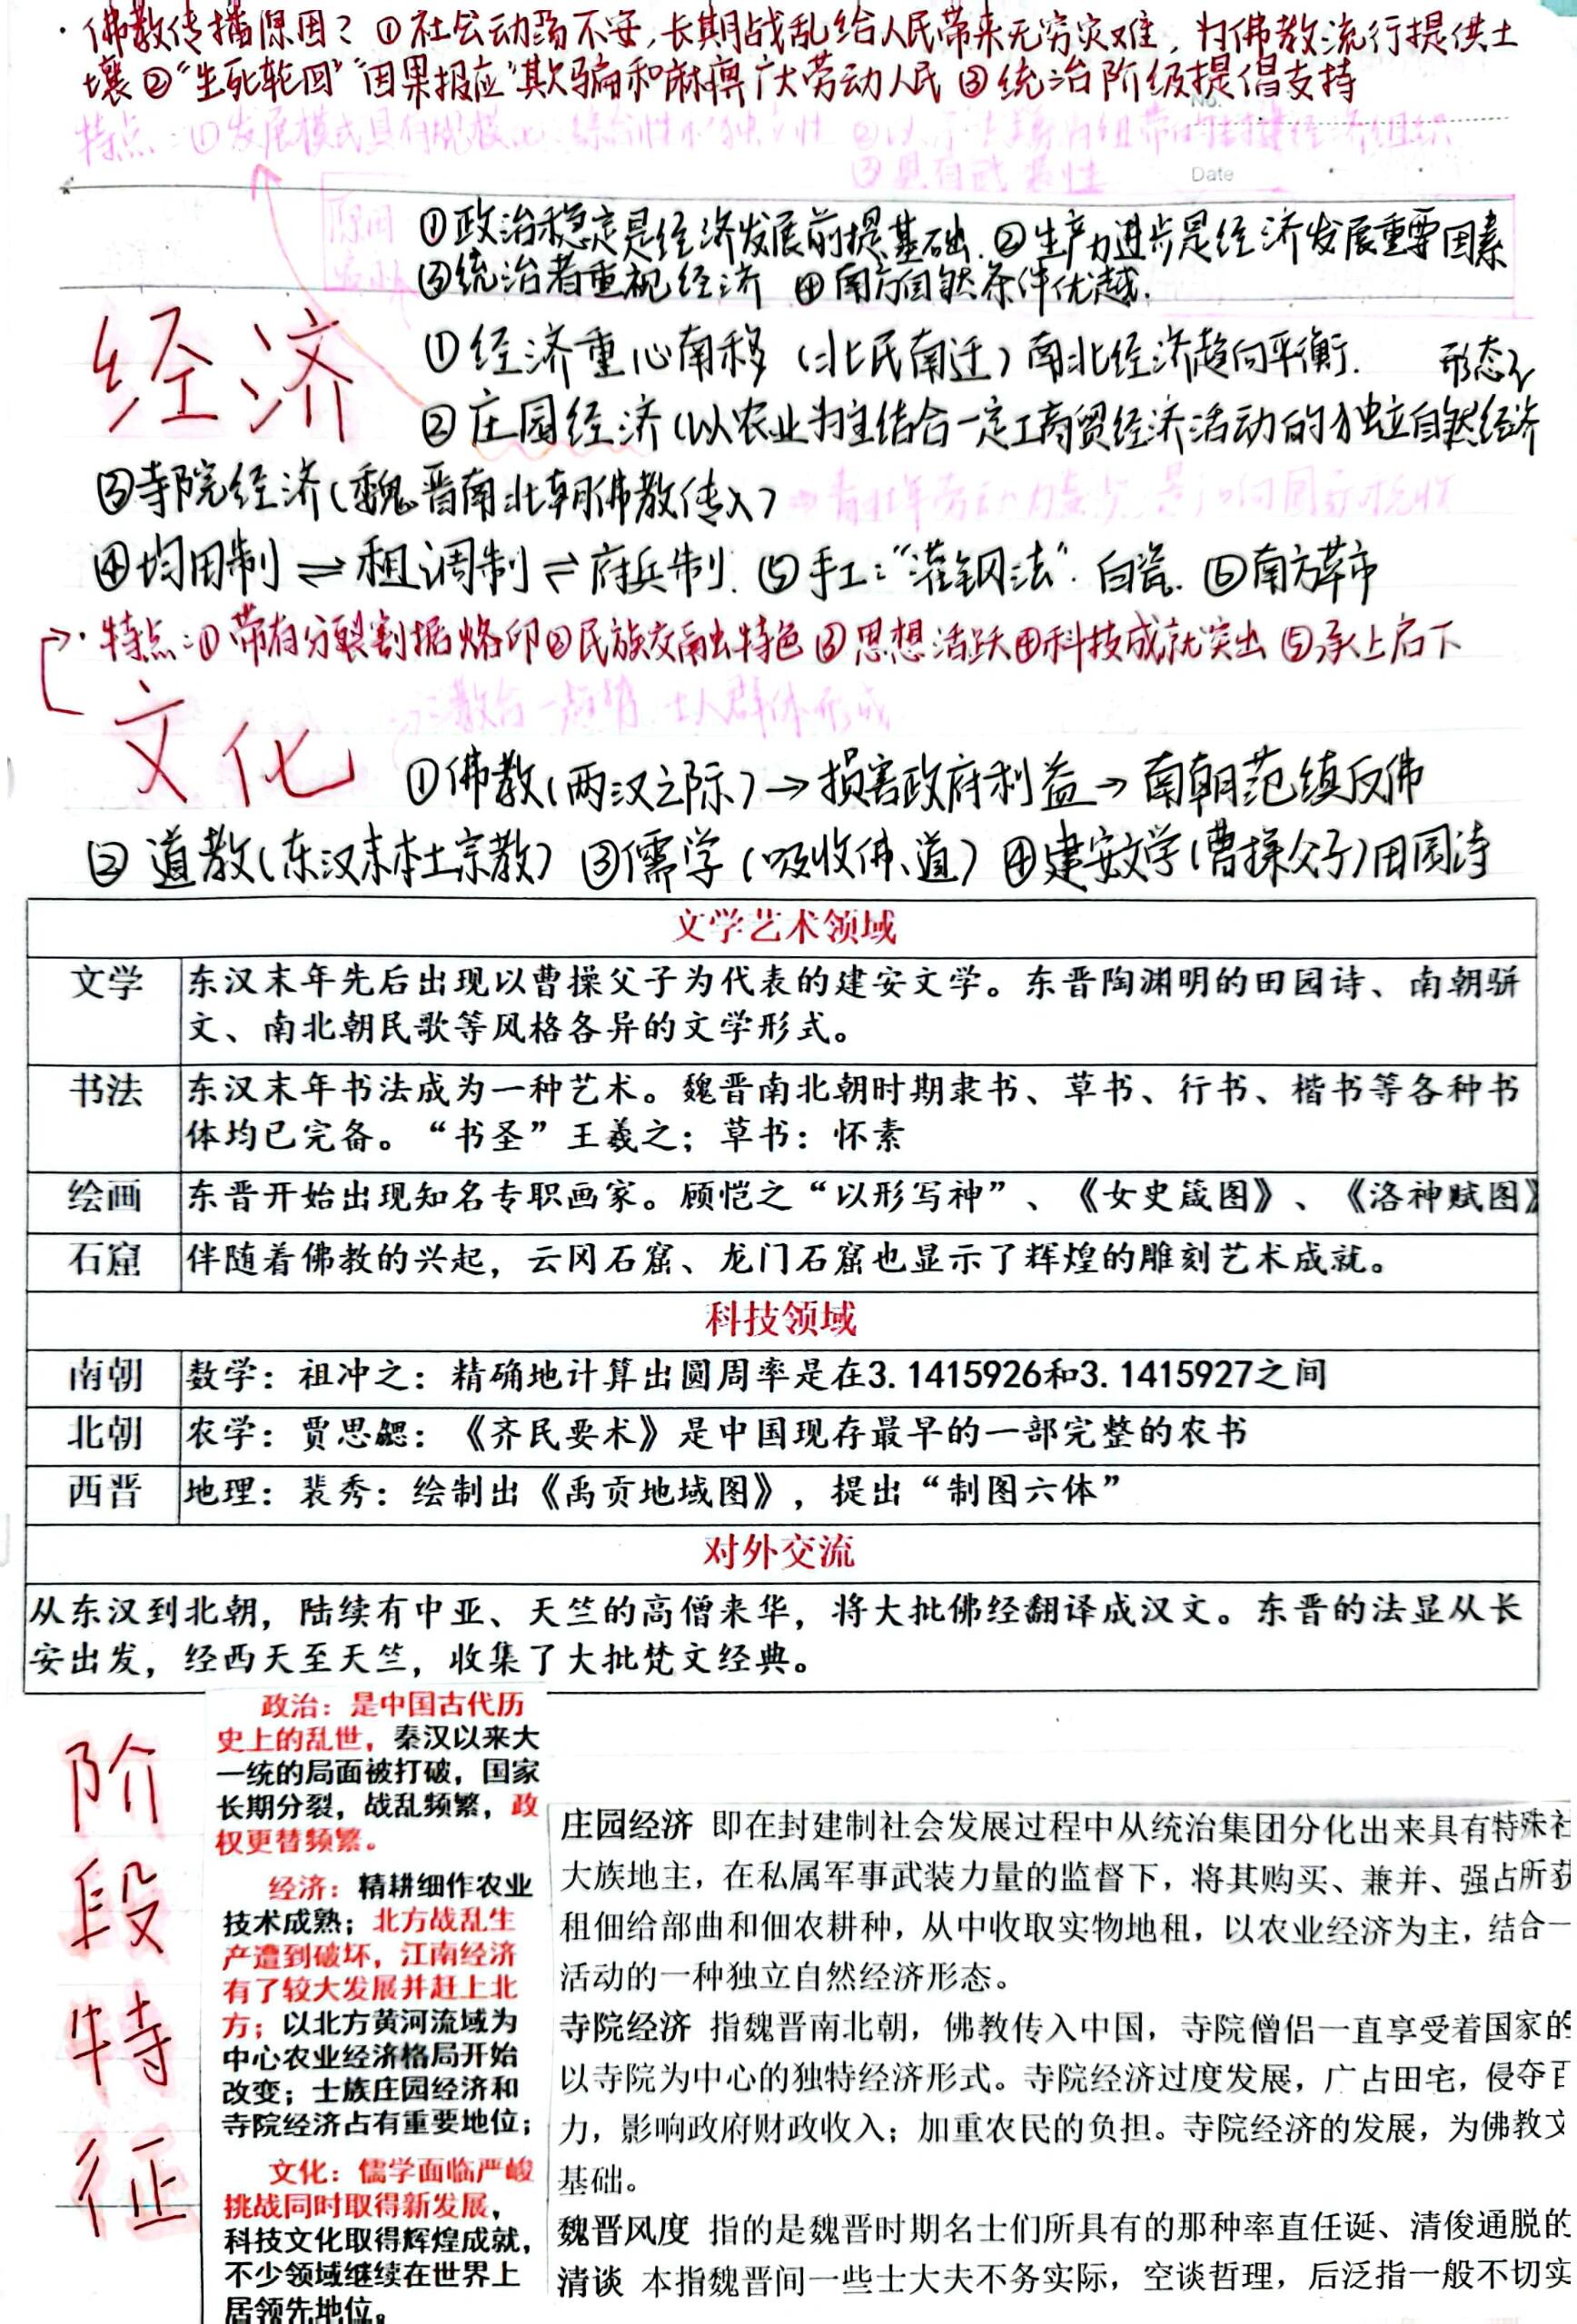 ·佛教传播原因？①社会动荡不安,长期战乱给人民带来无穷灾难,为佛教流行提供土
壤②"生死轮回""因果报应"欺骗和麻痹广大劳动人民③统治阶级提倡支持
No.
特点:①发展模式具有规模
③具有武装性
Date
①政治稳定是经济发展前提基础.②生产力进步是经济发展重要因素
③统治者重视经济 ④南方自然条件优越.
经济
①经济重心南移(北民南迁)南北经济趋向平衡.
形态
②庄园经济(以农业为主结合一定工商贸经济活动的独立自然经济
③寺院经济(魏晋南北朝佛教传入)
④均田制⇌租调制⇌府兵制.⑤手工:"灌钢法".白瓷.⑥南方草市
·特点:①带有分裂割据烙印②民族交融特色③思想活跃④科技成就突出⑤承上启下
士人群体形成
文化
①佛教(两汉之际)→损害政府利益→南朝范缜反佛
②道教(东汉末本土宗教)③儒学(吸收佛、道)④建安文学(曹操父子)田园诗
文学艺术领域
文学 东汉末年先后出现以曹操父子为代表的建安文学。东晋陶渊明的田园诗、南朝骈
文、南北朝民歌等风格各异的文学形式。
书法 东汉末年书法成为一种艺术。魏晋南北朝时期隶书、草书、行书、楷书等各种书
体均已完备。“书圣”王羲之；草书：怀素
绘画 东晋开始出现知名专职画家。顾恺之“以形写神”、《女史箴图》、《洛神赋图》
石窟 伴随着佛教的兴起，云冈石窟、龙门石窟也显示了辉煌的雕刻艺术成就。
科技领域
南朝 数学：祖冲之：精确地计算出圆周率是在3.1415926和3.1415927之间
北朝 农学：贾思勰：《齐民要术》是中国现存最早的一部完整的农书
西晋 地理：裴秀：绘制出《禹贡地域图》，提出“制图六体”
对外交流
从东汉到北朝，陆续有中亚、天竺的高僧来华，将大批佛经翻译成汉文。东晋的法显从长
安出发，经西天至天竺，收集了大批梵文经典。
阶段特征
政治：是中国古代历
史上的乱世，秦汉以来大
一统的局面被打破，国家
长期分裂，战乱频繁，政
权更替频繁。
经济：精耕细作农业
技术成熟；北方战乱生
产遭到破坏，江南经济
有了较大发展并赶上北
方；以北方黄河流域为
中心农业经济格局开始
改变；士族庄园经济和
寺院经济占有重要地位；
文化：儒学面临严峻
挑战同时取得新发展，
科技文化取得辉煌成就，
不少领域继续在世界上
居领先地位。
庄园经济 即在封建制社会发展过程中从统治集团分化出来具有特殊社
大族地主，在私属军事武装力量的监督下，将其购买、兼并、强占所获
租佃给部曲和佃农耕种，从中收取实物地租，以农业经济为主，结合一
活动的一种独立自然经济形态。
寺院经济 指魏晋南北朝，佛教传入中国，寺院僧侣一直享受着国家的
以寺院为中心的独特经济形式。寺院经济过度发展，广占田宅，侵夺百
力，影响政府财政收入；加重农民的负担。寺院经济的发展，为佛教文
基础。
魏晋风度 指的是魏晋时期名士们所具有的那种率直任诞、清俊通脱的
清谈 本指魏晋间一些士大夫不务实际，空谈哲理，后泛指一般不切实